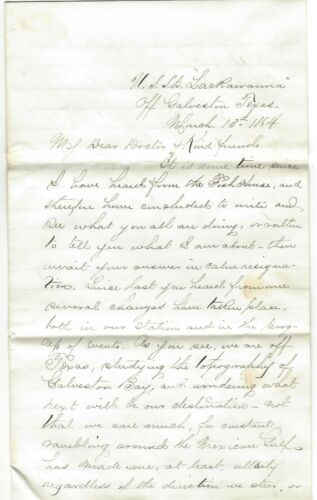 U.S.Str. "Lackawanna"
Off Galveston Texas
March 13th 1864
My Dear Doctor & Kind friends
It is some time since
I have heard from the Fish House, and
therefore have concluded to write and
see what you all are doing, or rather
to tell you what I am about - then
await your answer in calm resigna-
tion. Since last you heard from me
several changes have taken place,
both in our station and in the
of events. As you see, we are off
Texas, studying the topography of
Galveston Bay, and wondering what
next will be our destination - not
that we care much, for constant
rambling around the Mexican Gulf
has made me, at least, utterly
regardless of the direction we steer, or